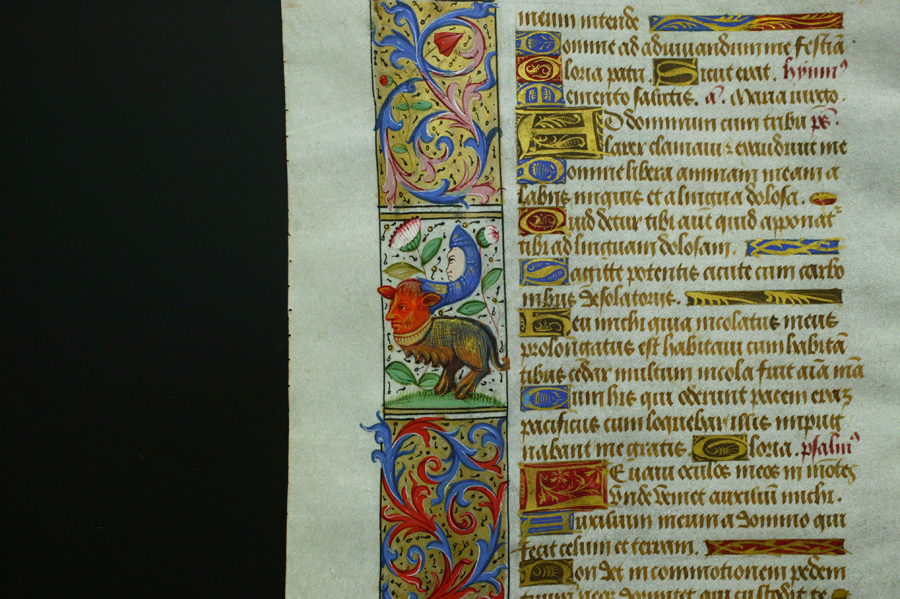 meum intende
Domine ad adiuvandum me festiā
Gloria patri Sicut erat. hymn⁹
Memento salutis. a. Maria virgo.
AD dominum cum tribu ps.
larer clamavi: exaudivit me
Domine libera animam meam a
labiis iniquis et a lingua dolosa.
Quid detur tibi aut quid apponat²
tibi ad linguam dolosam.
Sagitte potentis acute cum carbo
nibus desolatoriis.
Heu michi quia incolatus meus
prolongatus est habitavi cum habitā
tibus cedar multum incola fuit aīa mā
Cum his qui oderunt pacem eraz
pacificus cum loquebar illis impug
nabant me gratis. Gloria. psalm⁹
LEvavi oculos meos in mōtes
Unde veniet auxiliū michi.
Auxilium meum a domino qui
fecit celum et terram.
Non det in commotionem pedem
tuum neque dormitet qui custodit te